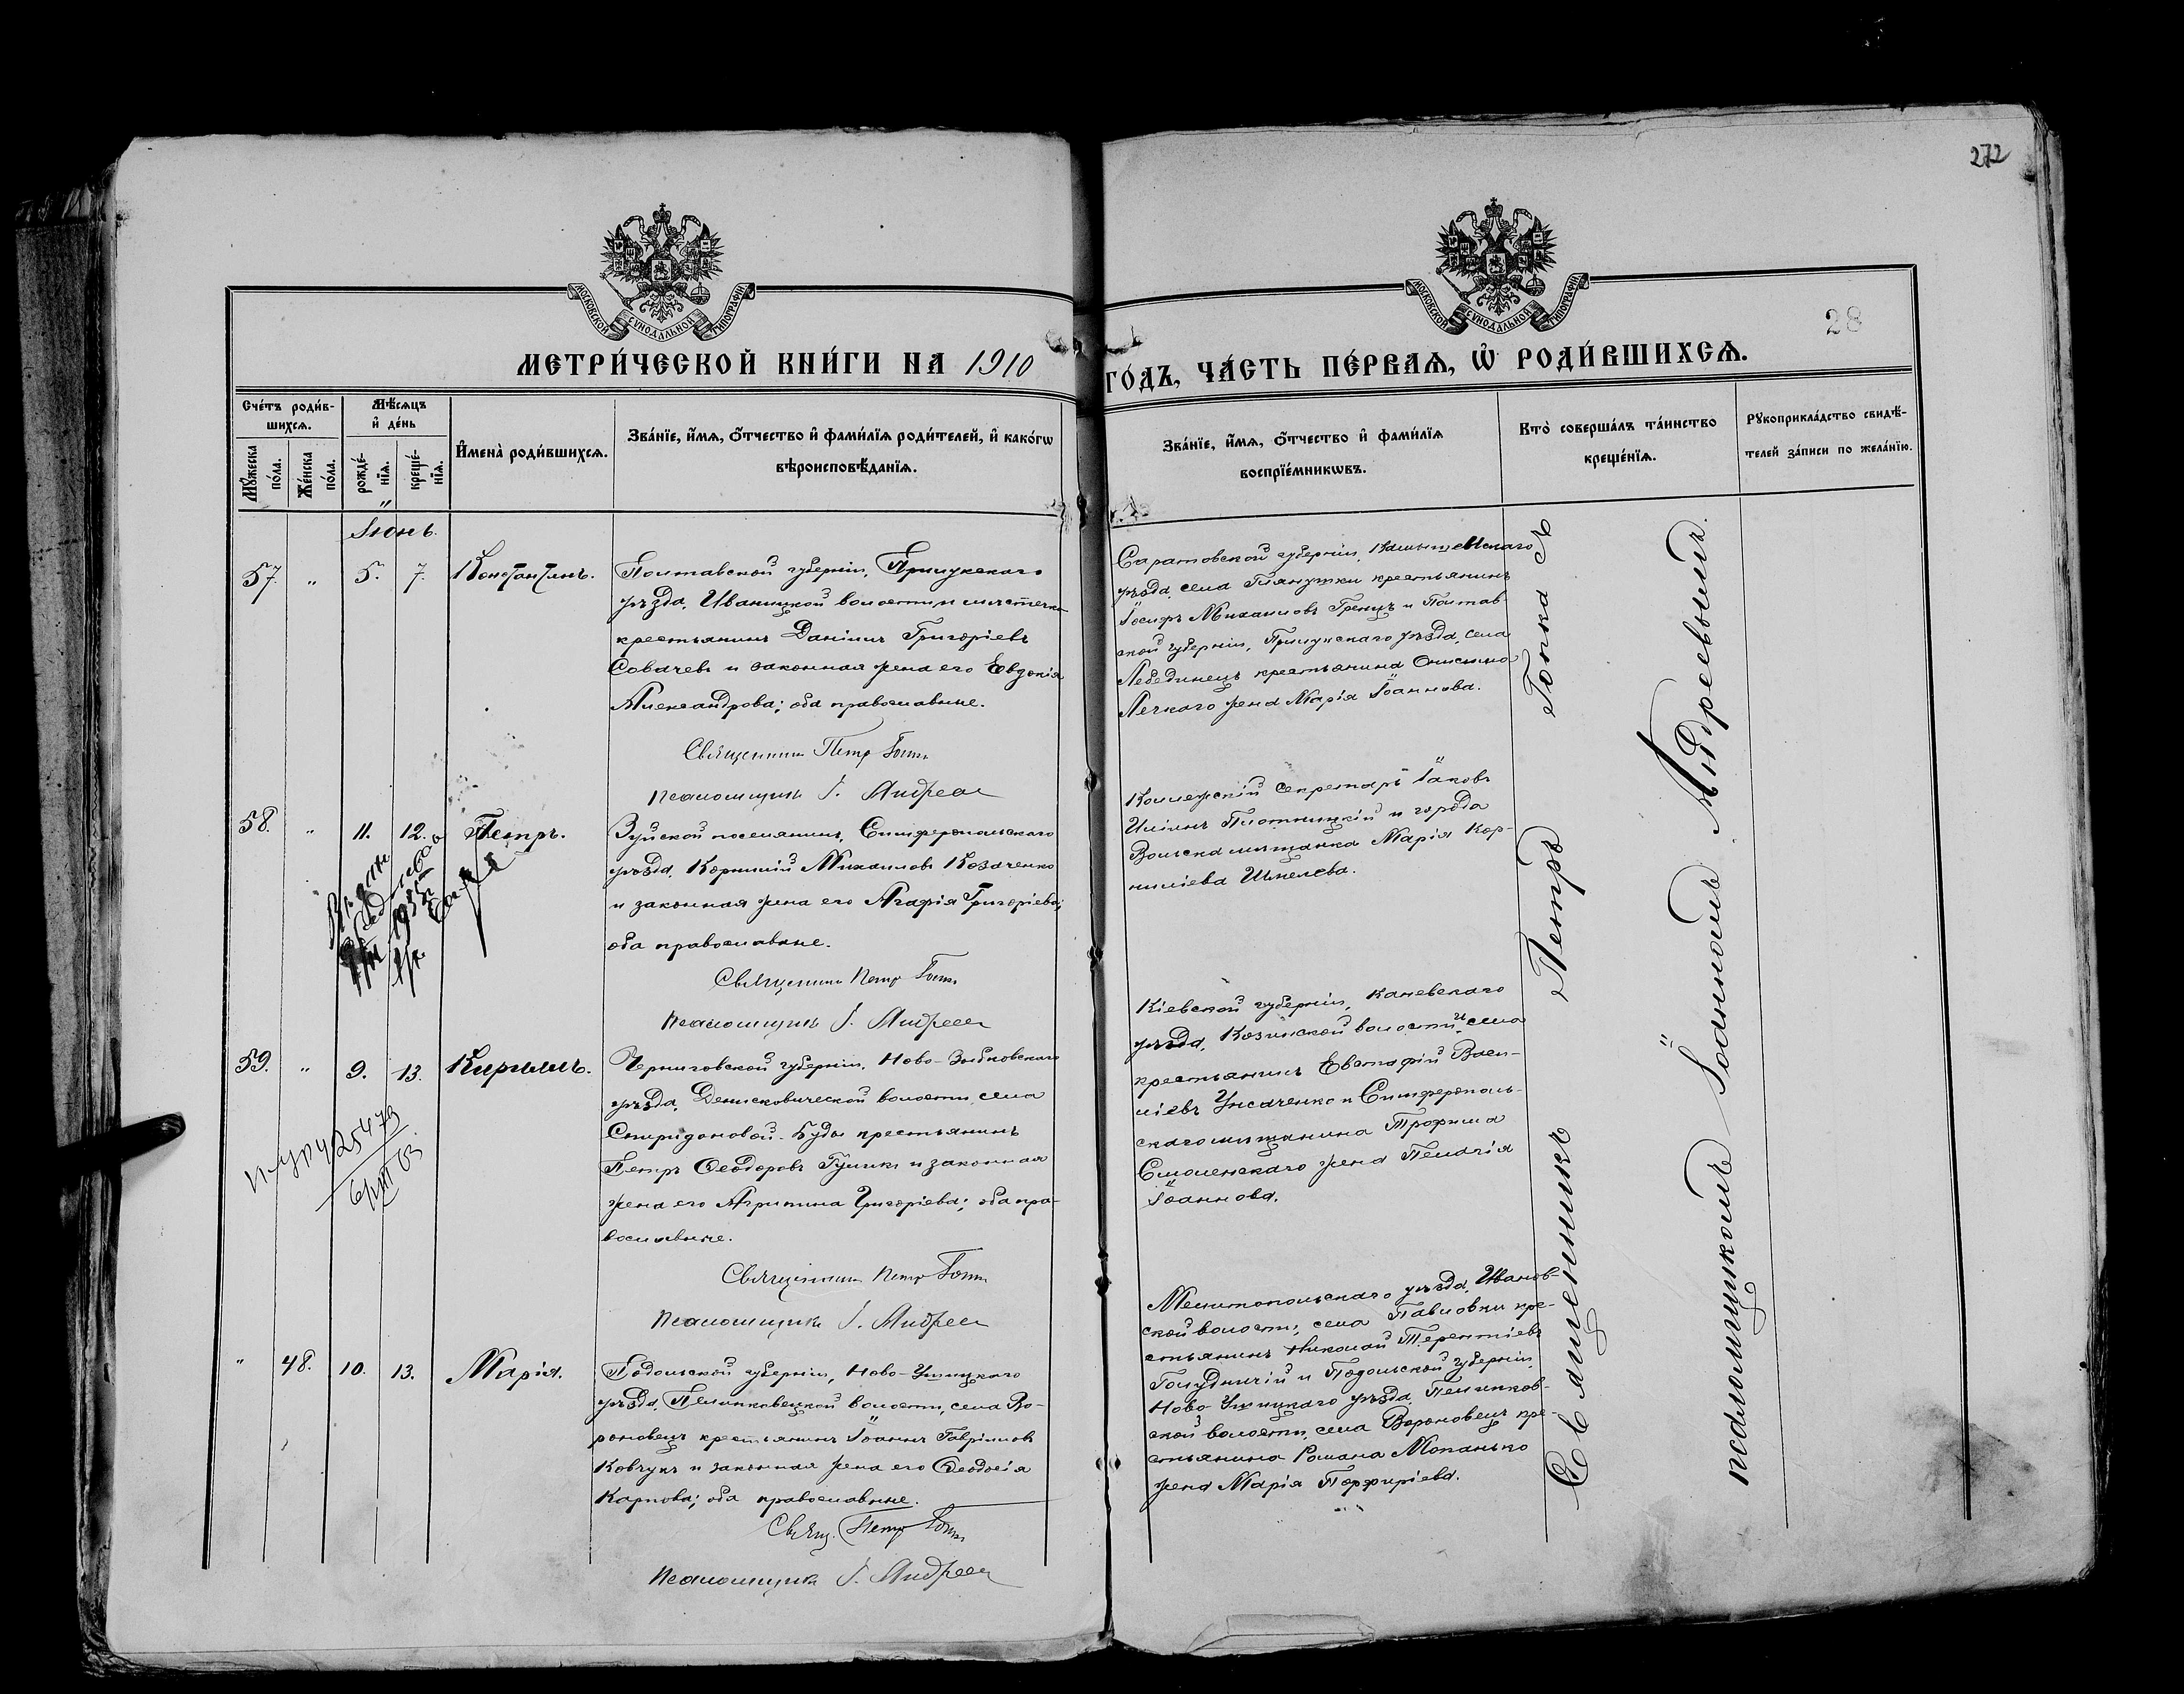 272
МОСКОВСКОЙ СѴНОДАЛЬНОЙ ТИПОГРАФІИ
МОСКОВСКОЙ СѴНОДАЛЬНОЙ ТИПОГРАФІИ
28
МЕТРИ́ЧЕСКОЙ КНИ́ГИ НА 1910 ГО́ДЪ, ЧА́СТЬ ПЕ́РВАѦ, Ѡ҆ РОДИ́ВШИХСѦ.
Сче́тъ роди́в-
шихсѧ.
Мꙋ́жеска по́ла.
Же́нска по́ла.
Мѣ́сѧцъ и҆ де́нь
рожде́-
нїѧ.
креще́-
нїѧ.
И҆мена̀ роди́вшихсѧ.
Зва́нїе, и҆́мѧ, ѻ҆́тчество и҆ фами́лїѧ роди́телей, и҆ како́гѡ
вѣроисповѣ́данїѧ.
Зва́нїе, и҆́мѧ, ѻ҆́тчество и҆ фами́лїѧ
воспрїе́мникѡвъ.
Кто̀ соверша́лъ та́инство
креще́нїѧ.
Рꙋкоприкла́дство свидѣ́-
телей за́писи по жела́нїю.
Іюнь.
57. " 5. 7. Константинъ.
Полтавской губерніи, Прилукскаго
уѣзда, Иваницкой волости и мѣстечка
крестьянинъ Даніилъ Григоріевъ
Совачевъ и законная жена его Евдокія
Александрова; оба православные.
Священникъ Петр
Псаломщикъ І. Андреев
Саратовской губерніи, Камышевскаго
уѣзда, села крестьянинъ
Іосифъ Михаиловъ и Полтав-
ской губерніи, Прилукскаго уѣзда, села
Лебединецъ крестьянина Онисима
жена Марія Іоаннова.
58. " 11. 12. Петръ.
Зуйской поселянинъ, Симферопольскаго
уѣзда, Корнилій Михаиловъ Козаченко
и законная жена его Агафія Григоріева;
оба православные.
Священникъ Петр
Псаломщикъ І. Андреев
Коллежскій секретарь Іаковъ
Илiинъ Плотницкій и города
Вольска мѣщанка Марія Кор-
нилiева Шмелева.
59. " 9. 13. Кириллъ.
425479
Черниговской губерніи, Ново-Зыбковскаго
уѣзда, Денисковической волости, села
Спиридоновой-Буды крестьянинъ
Петръ Ѳеодоровъ и законная
жена его Агрипина Григоріева; оба пра-
вославные.
Священникъ Петр
Псаломщикъ І. Андреев
Кіевской губерніи, Каневскаго
уѣзда, Козинской волости и села
крестьянинъ Евстафій Васи-
ліевъ Усаченко и Симферополь-
скаго мѣщанина Трофима
Смоленскаго жена Пелагія
Іоаннова.
" 48. 10. 13. Марія.
Подольской губерніи, Ново-Ушицкаго
уѣзда, волости, села Во-
роновецъ крестьянинъ Іоаннъ Гавріиловъ
Ковчукъ и законная жена его Ѳеодосія
Карпова; оба православные.
Свящ. Петр
Псаломщикъ І. Андреев
Мелитопольскаго уѣзда, Иванов-
ской волости, села Павловки кре-
стьянинъ Николай Терентіевъ
и Подольской губерніи,
Ново-Ушицкаго уѣзда,
ской волости, села Вороновецъ кре-
стьянина Романа
жена Марія Порфиріева.
Священникъ Петръ съ
псаломщикомъ Іоанномъ Андреевымъ.